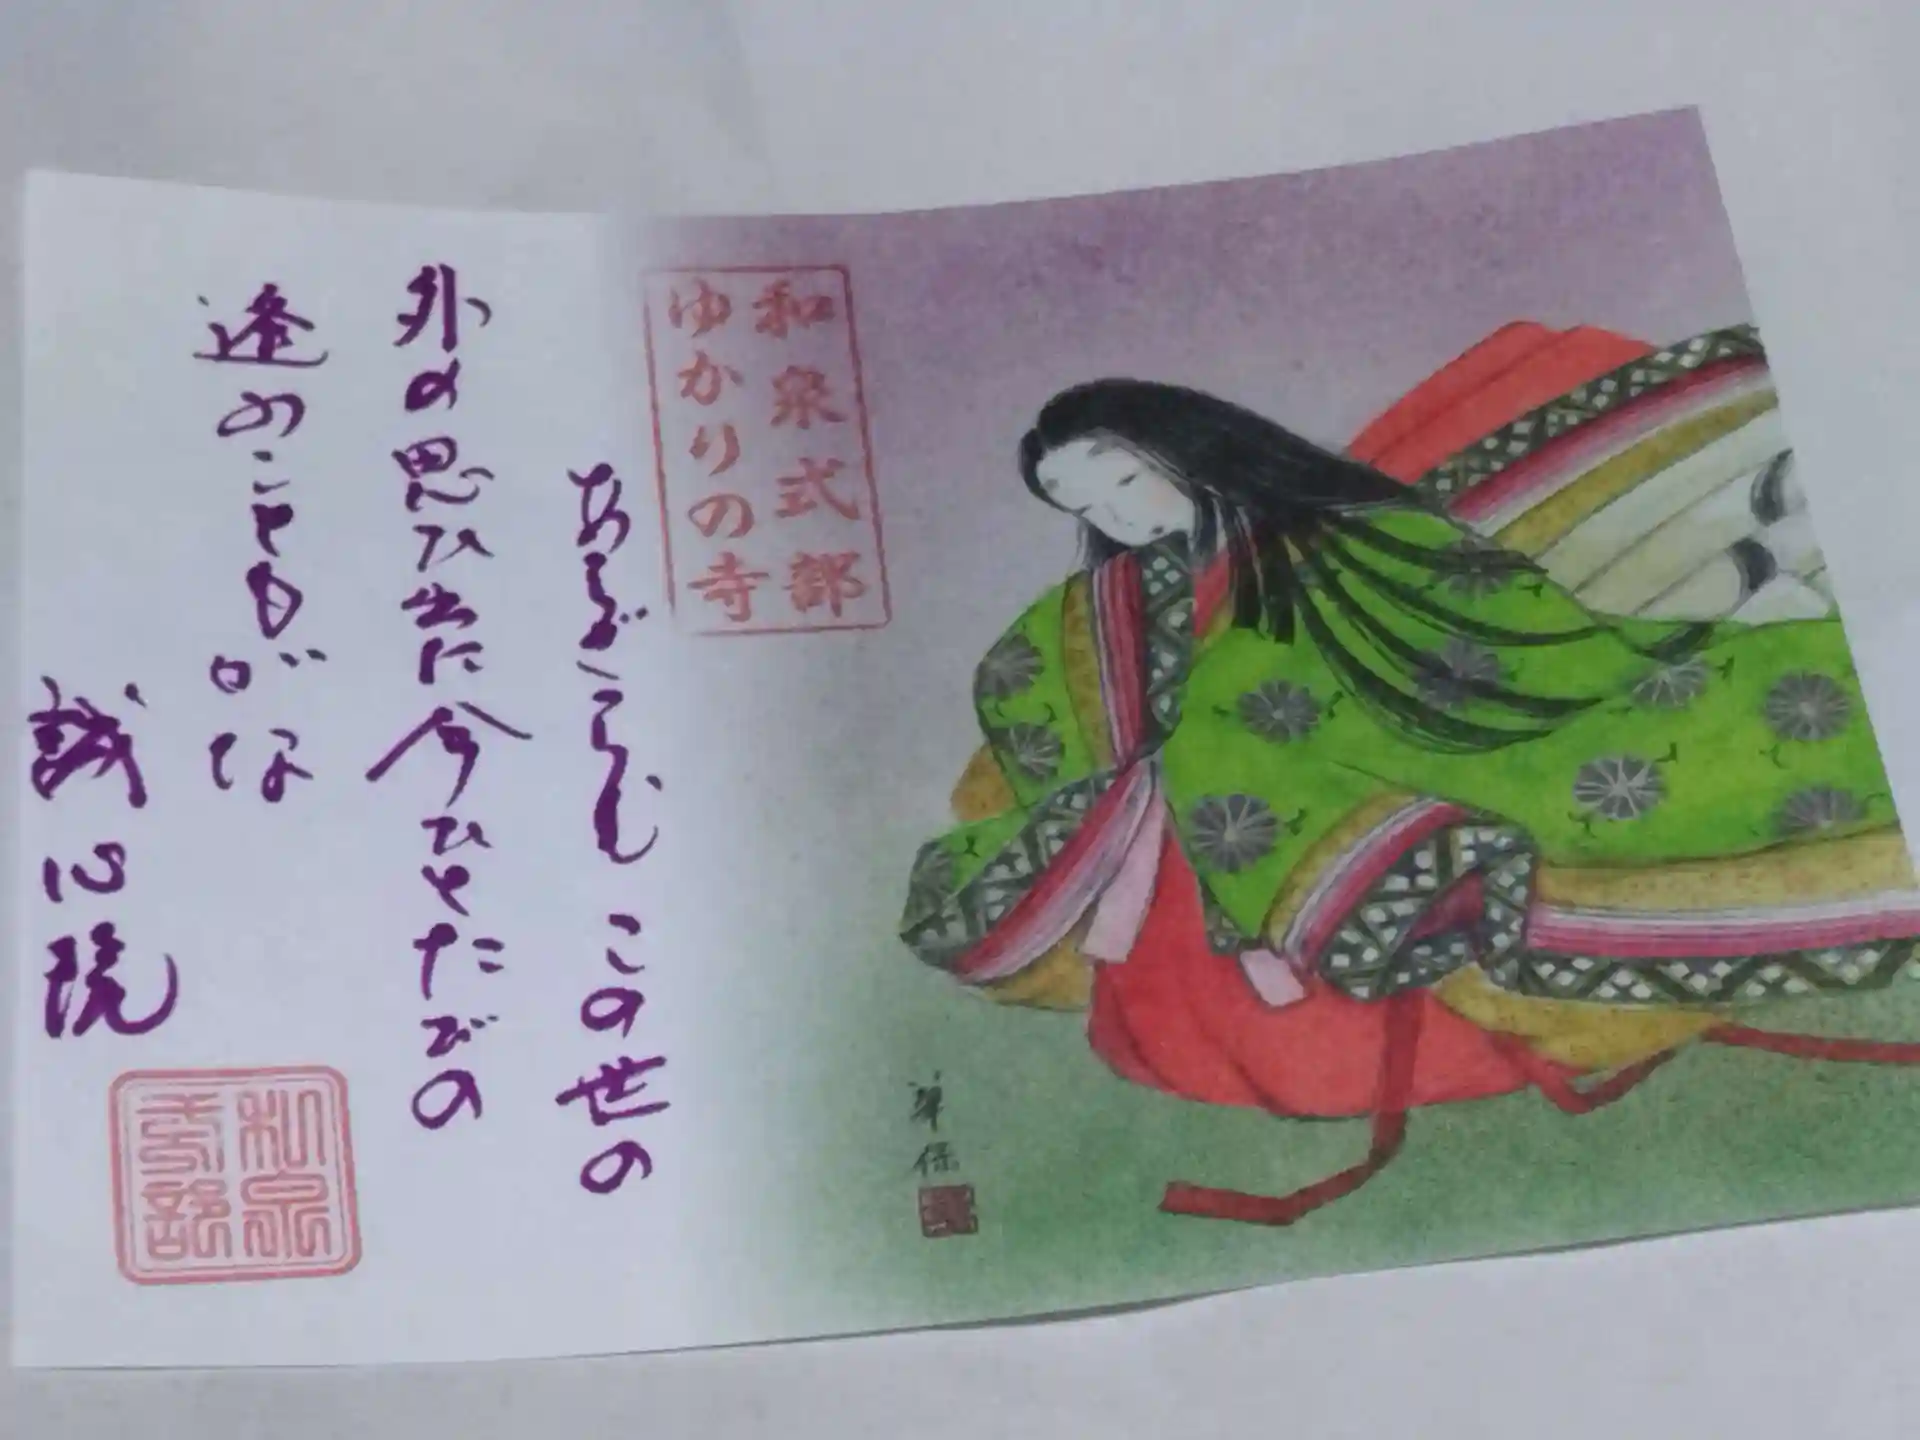 和泉式部
ゆかりの寺
あらざらむ この世の
外の思ひ出に 今ひとたびの
逢ふこともがな
誠心院
和泉
式部